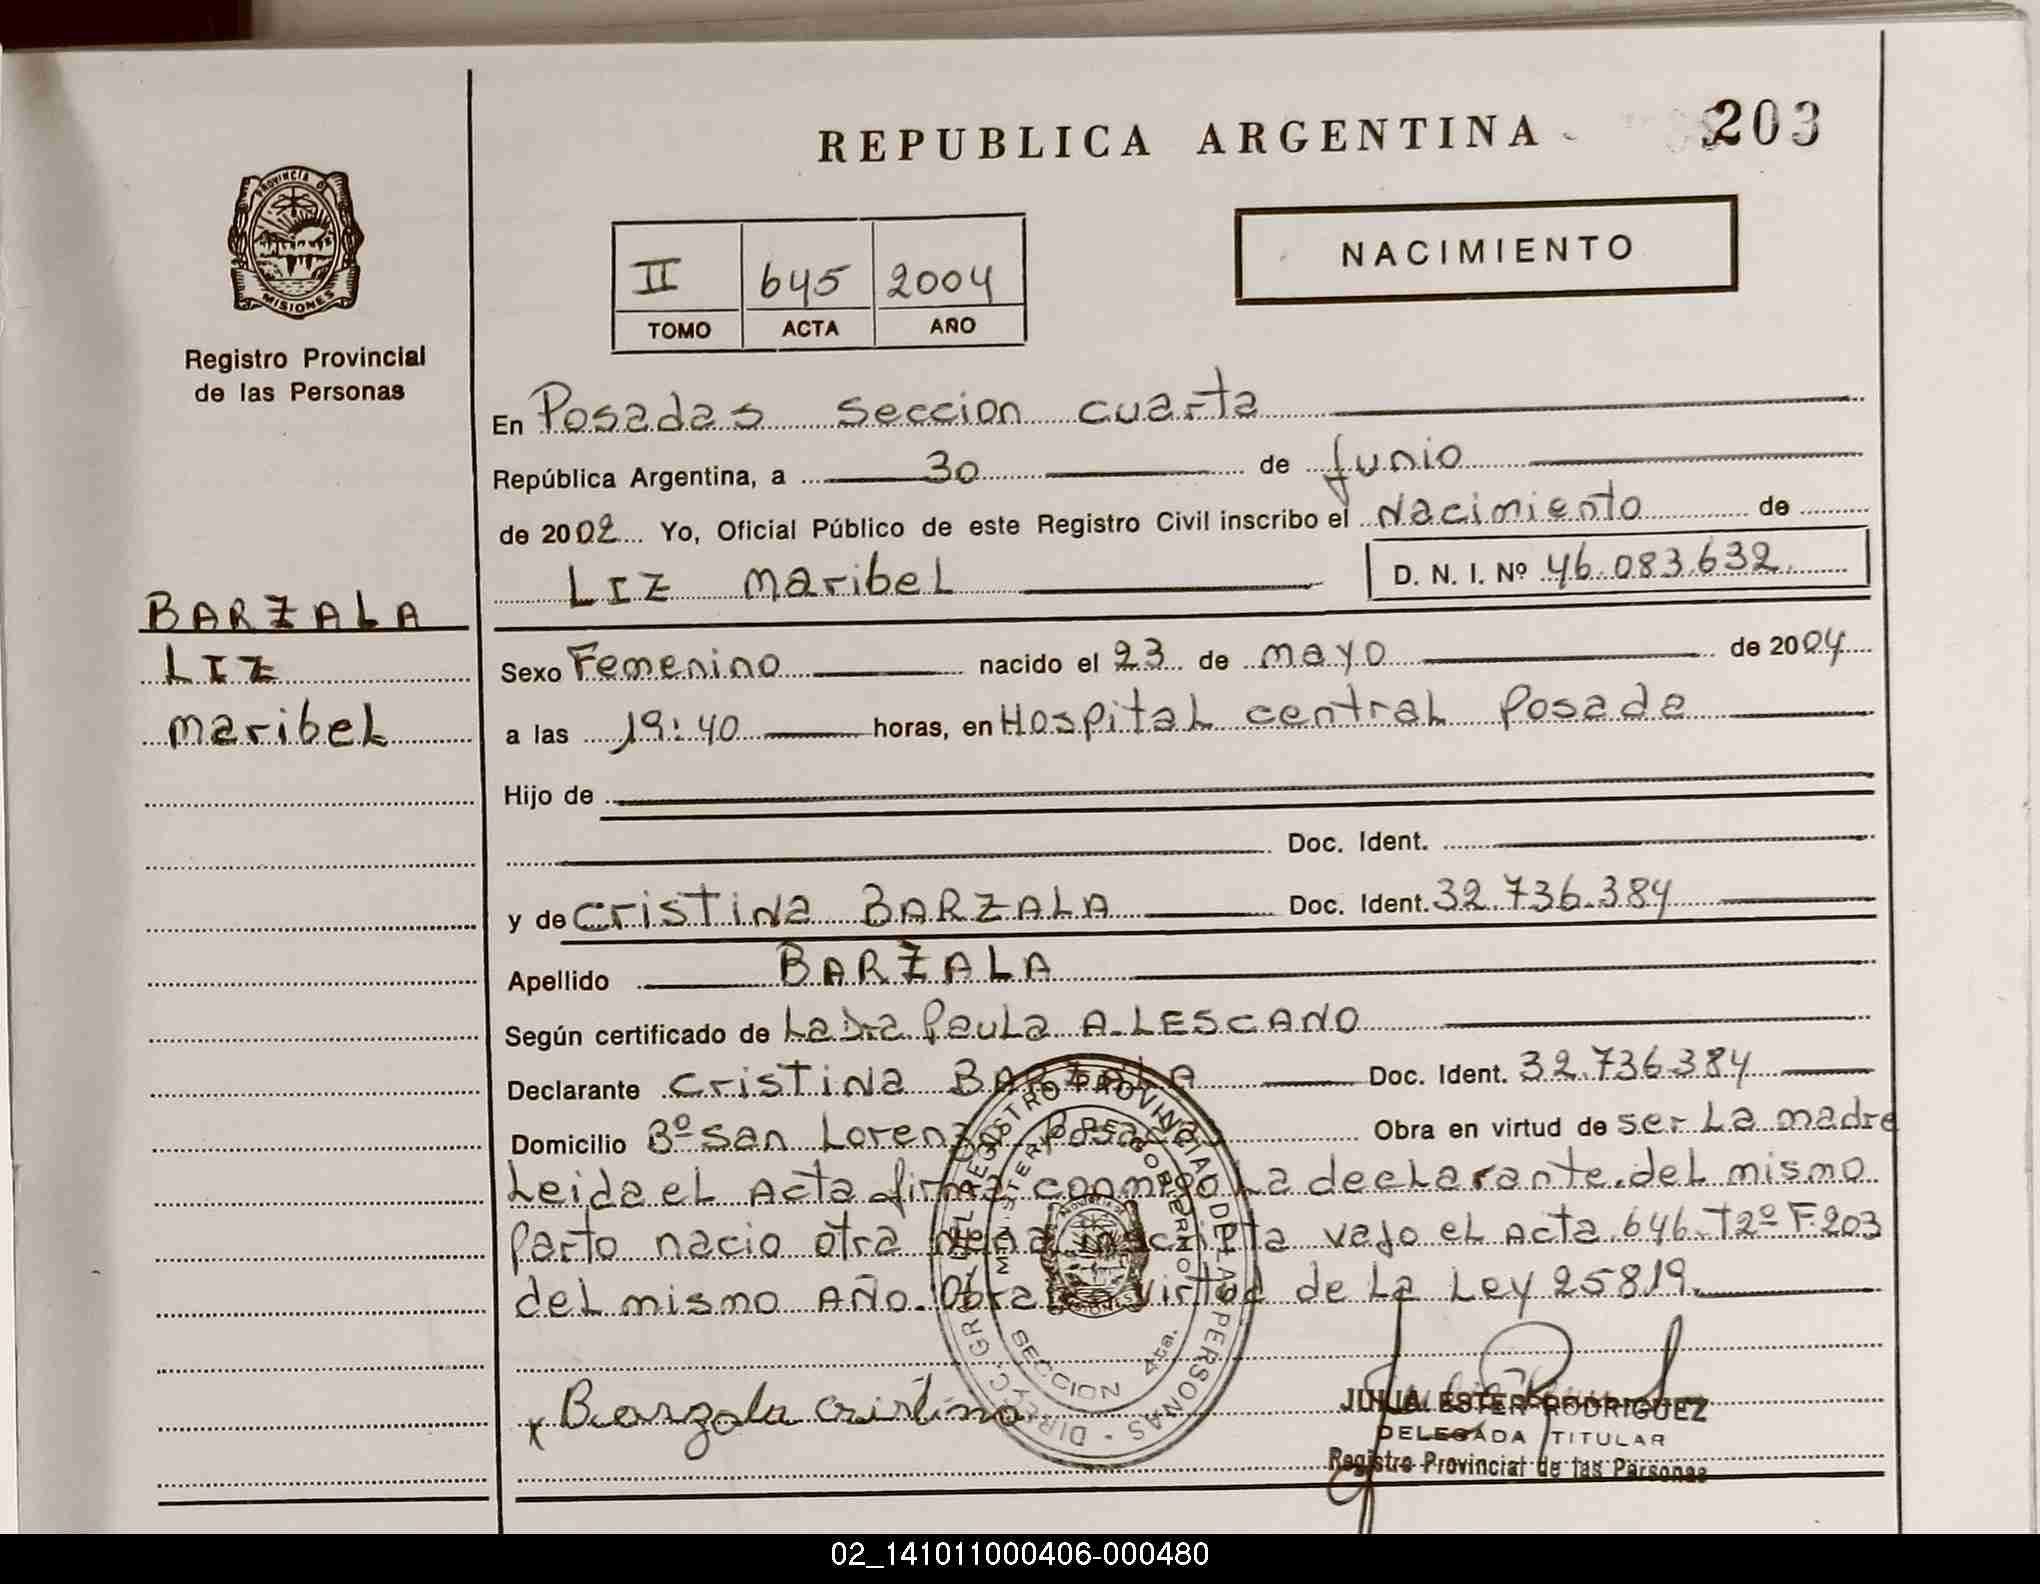 REPUBLICA ARGENTINA
203
PROVINCIA DE
MISIONES
Registro Provincial
de las Personas
II 645 2004
TOMO ACTA AÑO
NACIMIENTO
En Posadas seccion cuarta
República Argentina, a 30 de junio
de 2002 Yo, Oficial Público de este Registro Civil inscribo el Nacimiento de
LIZ maribel D. N. I. Nº 46.083.632
BARZALA
LIZ
maribel
Sexo Femenino nacido el 23 de mayo de 2004
a las 19:40 horas, en Hospital central Posada
Hijo de
Doc. Ident.
y de cristina BARZALA Doc. Ident. 32.736.384
Apellido BARZALA
Según certificado de La Dra Paula A. LESCANO
Declarante cristina BARZALA Doc. Ident. 32.736.384
Domicilio Bº San Lorenzo Posadas Obra en virtud de ser La madre
Leida el Acta firma conmigo La declarante. del mismo
Parto nacio otra nena inscripta vajo el Acta 646. T2º F. 203
del mismo Año. Obra en virtud de La Ley 25819.
DIREC. GRAL. DEL REGISTRO PROVINCIAL DE LAS PERSONAS
MINISTERIO DE GOBIERNO
SECCION 4ta.
x Barzala cristina
JULIA ESTER RODRIGUEZ
DELEGADA TITULAR
Registro Provincial de las Personas
02_141011000406-000480